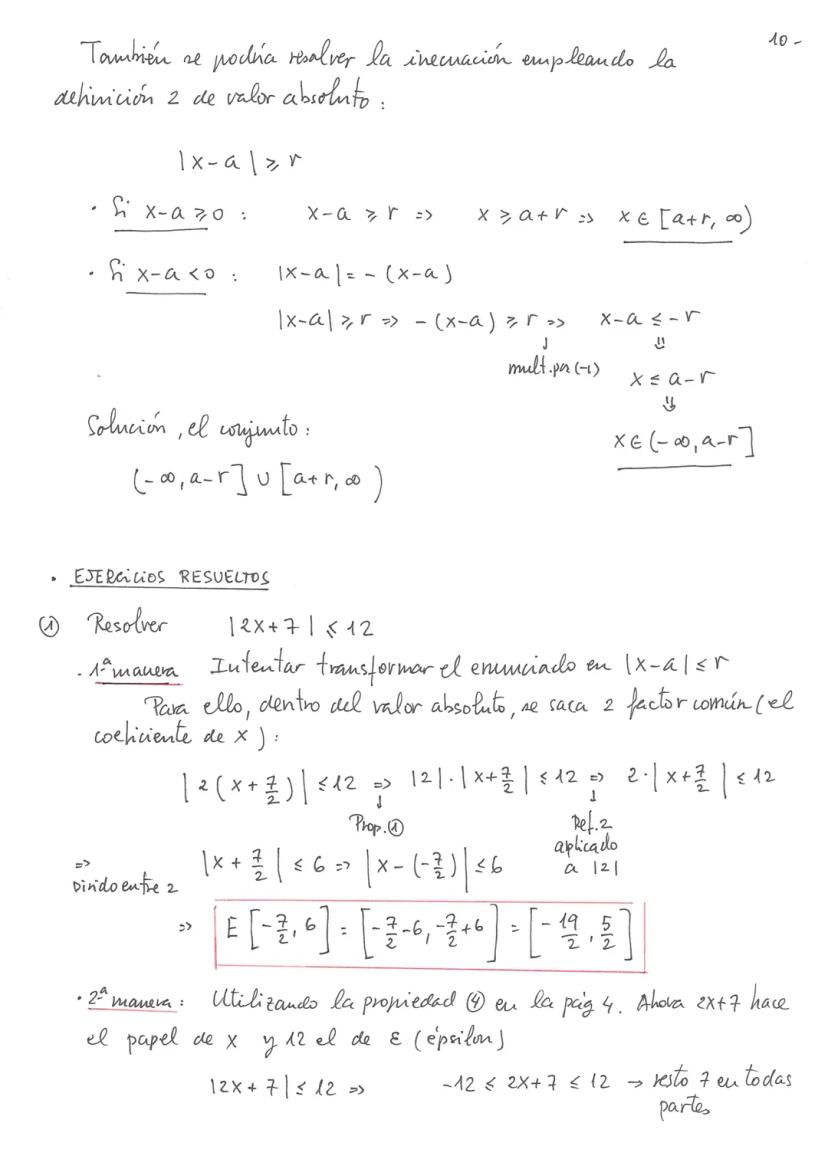 10-
También se podría resolver la inecuación empleando la
definición 2 de valor absoluto:
|x-a| ≥ r
· Si x-a ≥ 0 : x-a ≥ r => x ≥ a+r => x ∈ [a+r, ∞)
· Si x-a < 0 : |x-a| = -(x-a)
|x-a| ≥ r => -(x-a) ≥ r => x-a ≤ -r
↓ ⇓
mult. por (-1) x ≤ a-r
⇓
Solución, el conjunto: x ∈ (-∞, a-r]
(-∞, a-r] ∪ [a+r, ∞)
· EJERCICIOS RESUELTOS
① Resolver |2x+7| ≤ 12
· 1ª manera Intentar transformar el enunciado en |x-a| ≤ r
Para ello, dentro del valor absoluto, se saca 2 factor común (el
coeficiente de x):
|2(x + 7/2)| ≤ 12 => |2|·|x + 7/2| ≤ 12 => 2·|x + 7/2| ≤ 12
↓ ↓
Prop.① Def.2
aplicado
a |2|
=> |x + 7/2| ≤ 6 => |x - (-7/2)| ≤ 6
Divido entre 2
=> E[-7/2, 6] = [-7/2 - 6, -7/2 + 6] = [-19/2, 5/2]
· 2ª manera: Utilizando la propiedad ④ en la pág 4. Ahora 2x+7 hace
el papel de x y 12 el de ε (épsilon)
|2x + 7| ≤ 12 => -12 ≤ 2x+7 ≤ 12 → resto 7 en todas
partes